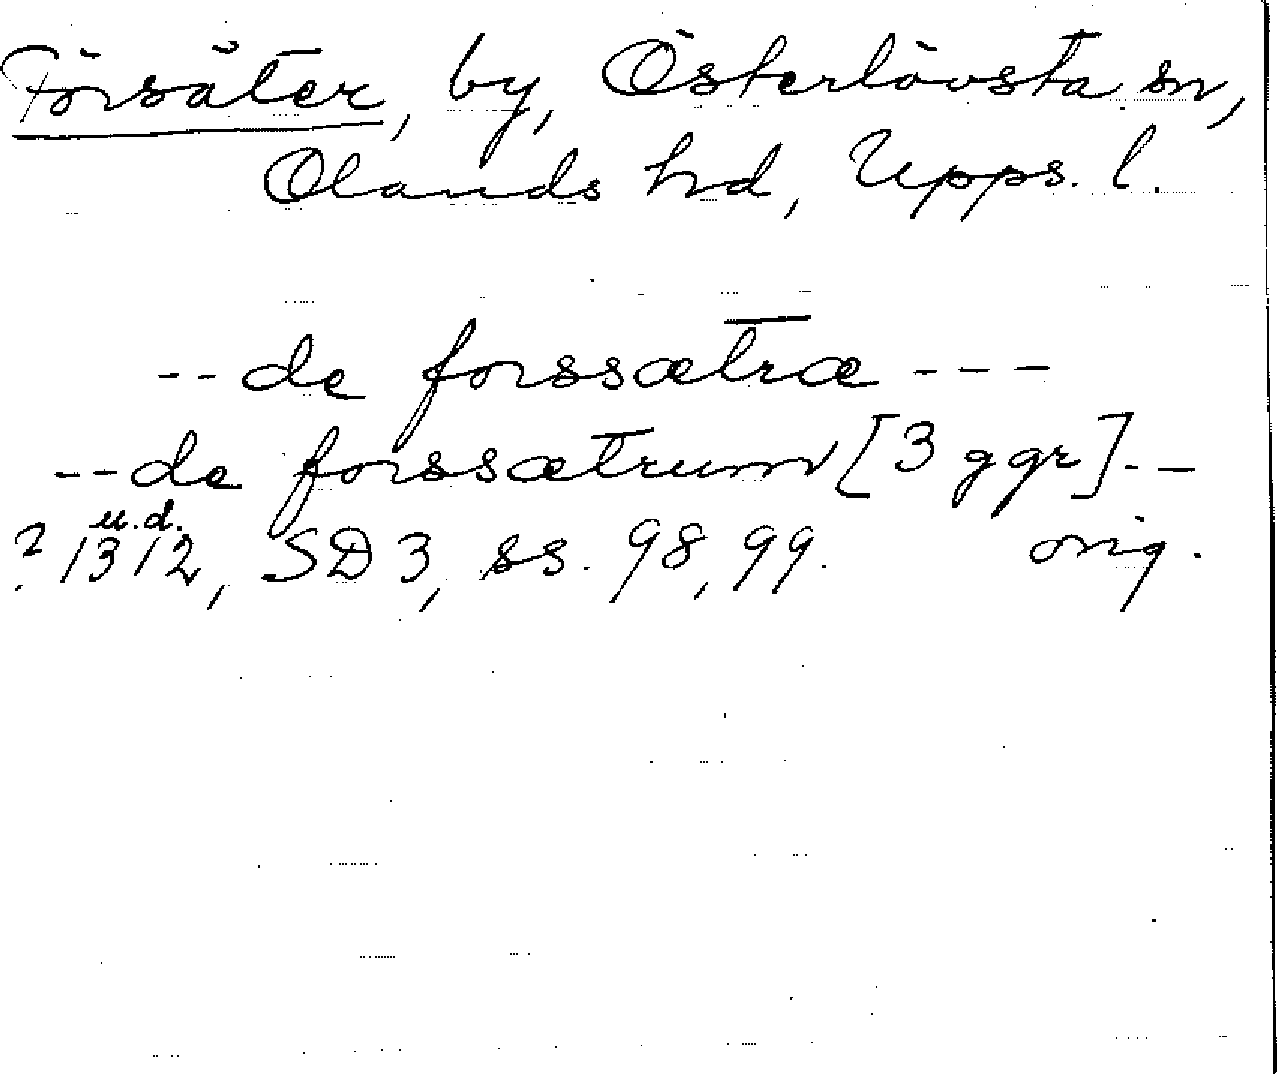 Försäter, by, Österlövsta sn,
Olands hd, Upps. l.
-- de forssætræ ---
-- de forssætrum [3 ggr] --
u.d.
? 1312, SD 3, ss. 98, 99. orig.